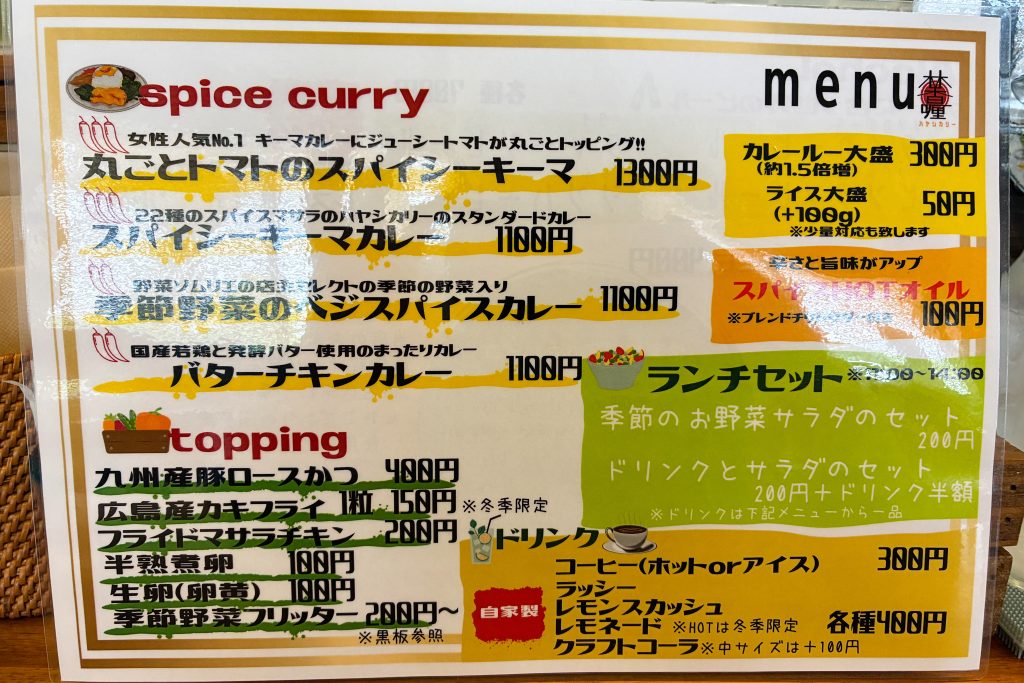 spice curry
menu
ハヤシカリー
女性人気No.1 キーマカレーにジューシートマトが丸ごとトッピング!!
丸ごとトマトのスパイシーキーマ 1300円
22種のスパイスマサラのハヤシカリーのスタンダードカレー
スパイシーキーマカレー 1100円
野菜ソムリエの店主セレクトの季節の野菜入り
季節野菜のベジスパイスカレー 1100円
国産若鶏と発酵バター使用のまったりカレー
バターチキンカレー 1100円
カレールー大盛 300円
(約1.5倍増)
ライス大盛 50円
(+100g)
※少量対応も致します
辛さと旨味がアップ
スパイスHOTオイル
100円
ランチセット
季節のお野菜サラダのセット
200円
ドリンクとサラダのセット
200円+ドリンク半額
※ドリンクは下記メニューから一品
topping
九州産豚ロースかつ 400円
広島産カキフライ 1粒 150円 ※冬季限定
フライドマサラチキン 200円
半熟煮卵 100円
生卵(卵黄) 100円
季節野菜フリッター 200円〜
※黒板参照
ドリンク
コーヒー(ホットorアイス) 300円
自家製
ラッシー
レモンスカッシュ
レモネード ※HOTは冬季限定 各種400円
クラフトコーラ ※中サイズは+100円